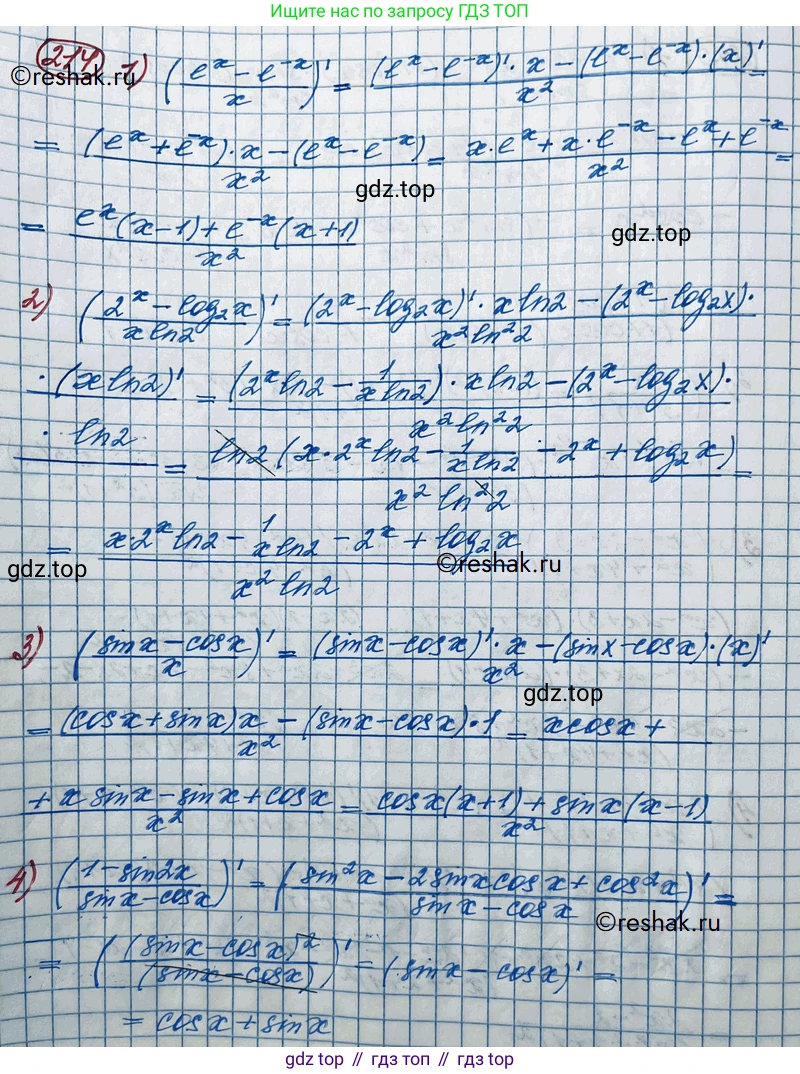 Ищите нас по запросу ГДЗ ТОП
214. 1) ((e^x − e^−x)/x)' = ((e^x − e^−x)'·x − (e^x − e^−x)·(x)')/x² =
©reshak.ru
= ((e^x + e^−x)·x − (e^x − e^−x))/x² = (x·e^x + x·e^−x − e^x + e^−x)/x² =
gdz.top
= (e^x(x−1) + e^−x(x+1))/x²
gdz.top
2) ((2^x − log₂x)/(x ln2))' = ((2^x − log₂x)'·x ln2 − (2^x − log₂x)·
·(x ln2)')/(x² ln²2) = ((2^x ln2 − 1/(x ln2))·x ln2 − (2^x − log₂x)·
· ln2)/(x² ln²2) = (ln2 (x·2^x ln2 − 1/(x ln2) − 2^x + log₂x))/(x² ln²2) =
= (x·2^x ln2 − 1/(x ln2) − 2^x + log₂x)/(x² ln2)
gdz.top
©reshak.ru
3) ((sinx − cosx)/x)' = ((sinx − cosx)'·x − (sinx − cosx)·(x)')/x²
gdz.top
= ((cosx + sinx)x − (sinx − cosx)·1)/x² = (xcosx +
+ x sinx − sinx + cosx)/x² = (cosx(x+1) + sinx(x−1))/x²
4) ((1 − sin2x)/(sinx − cosx))' = ((sin²x − 2sinxcosx + cos²x)/(sinx − cosx))' =
©reshak.ru
= ((sinx − cosx)²/(sinx − cosx))' = (sinx − cosx)' =
= cosx + sinx
gdz.top // гдз топ // gdz.top